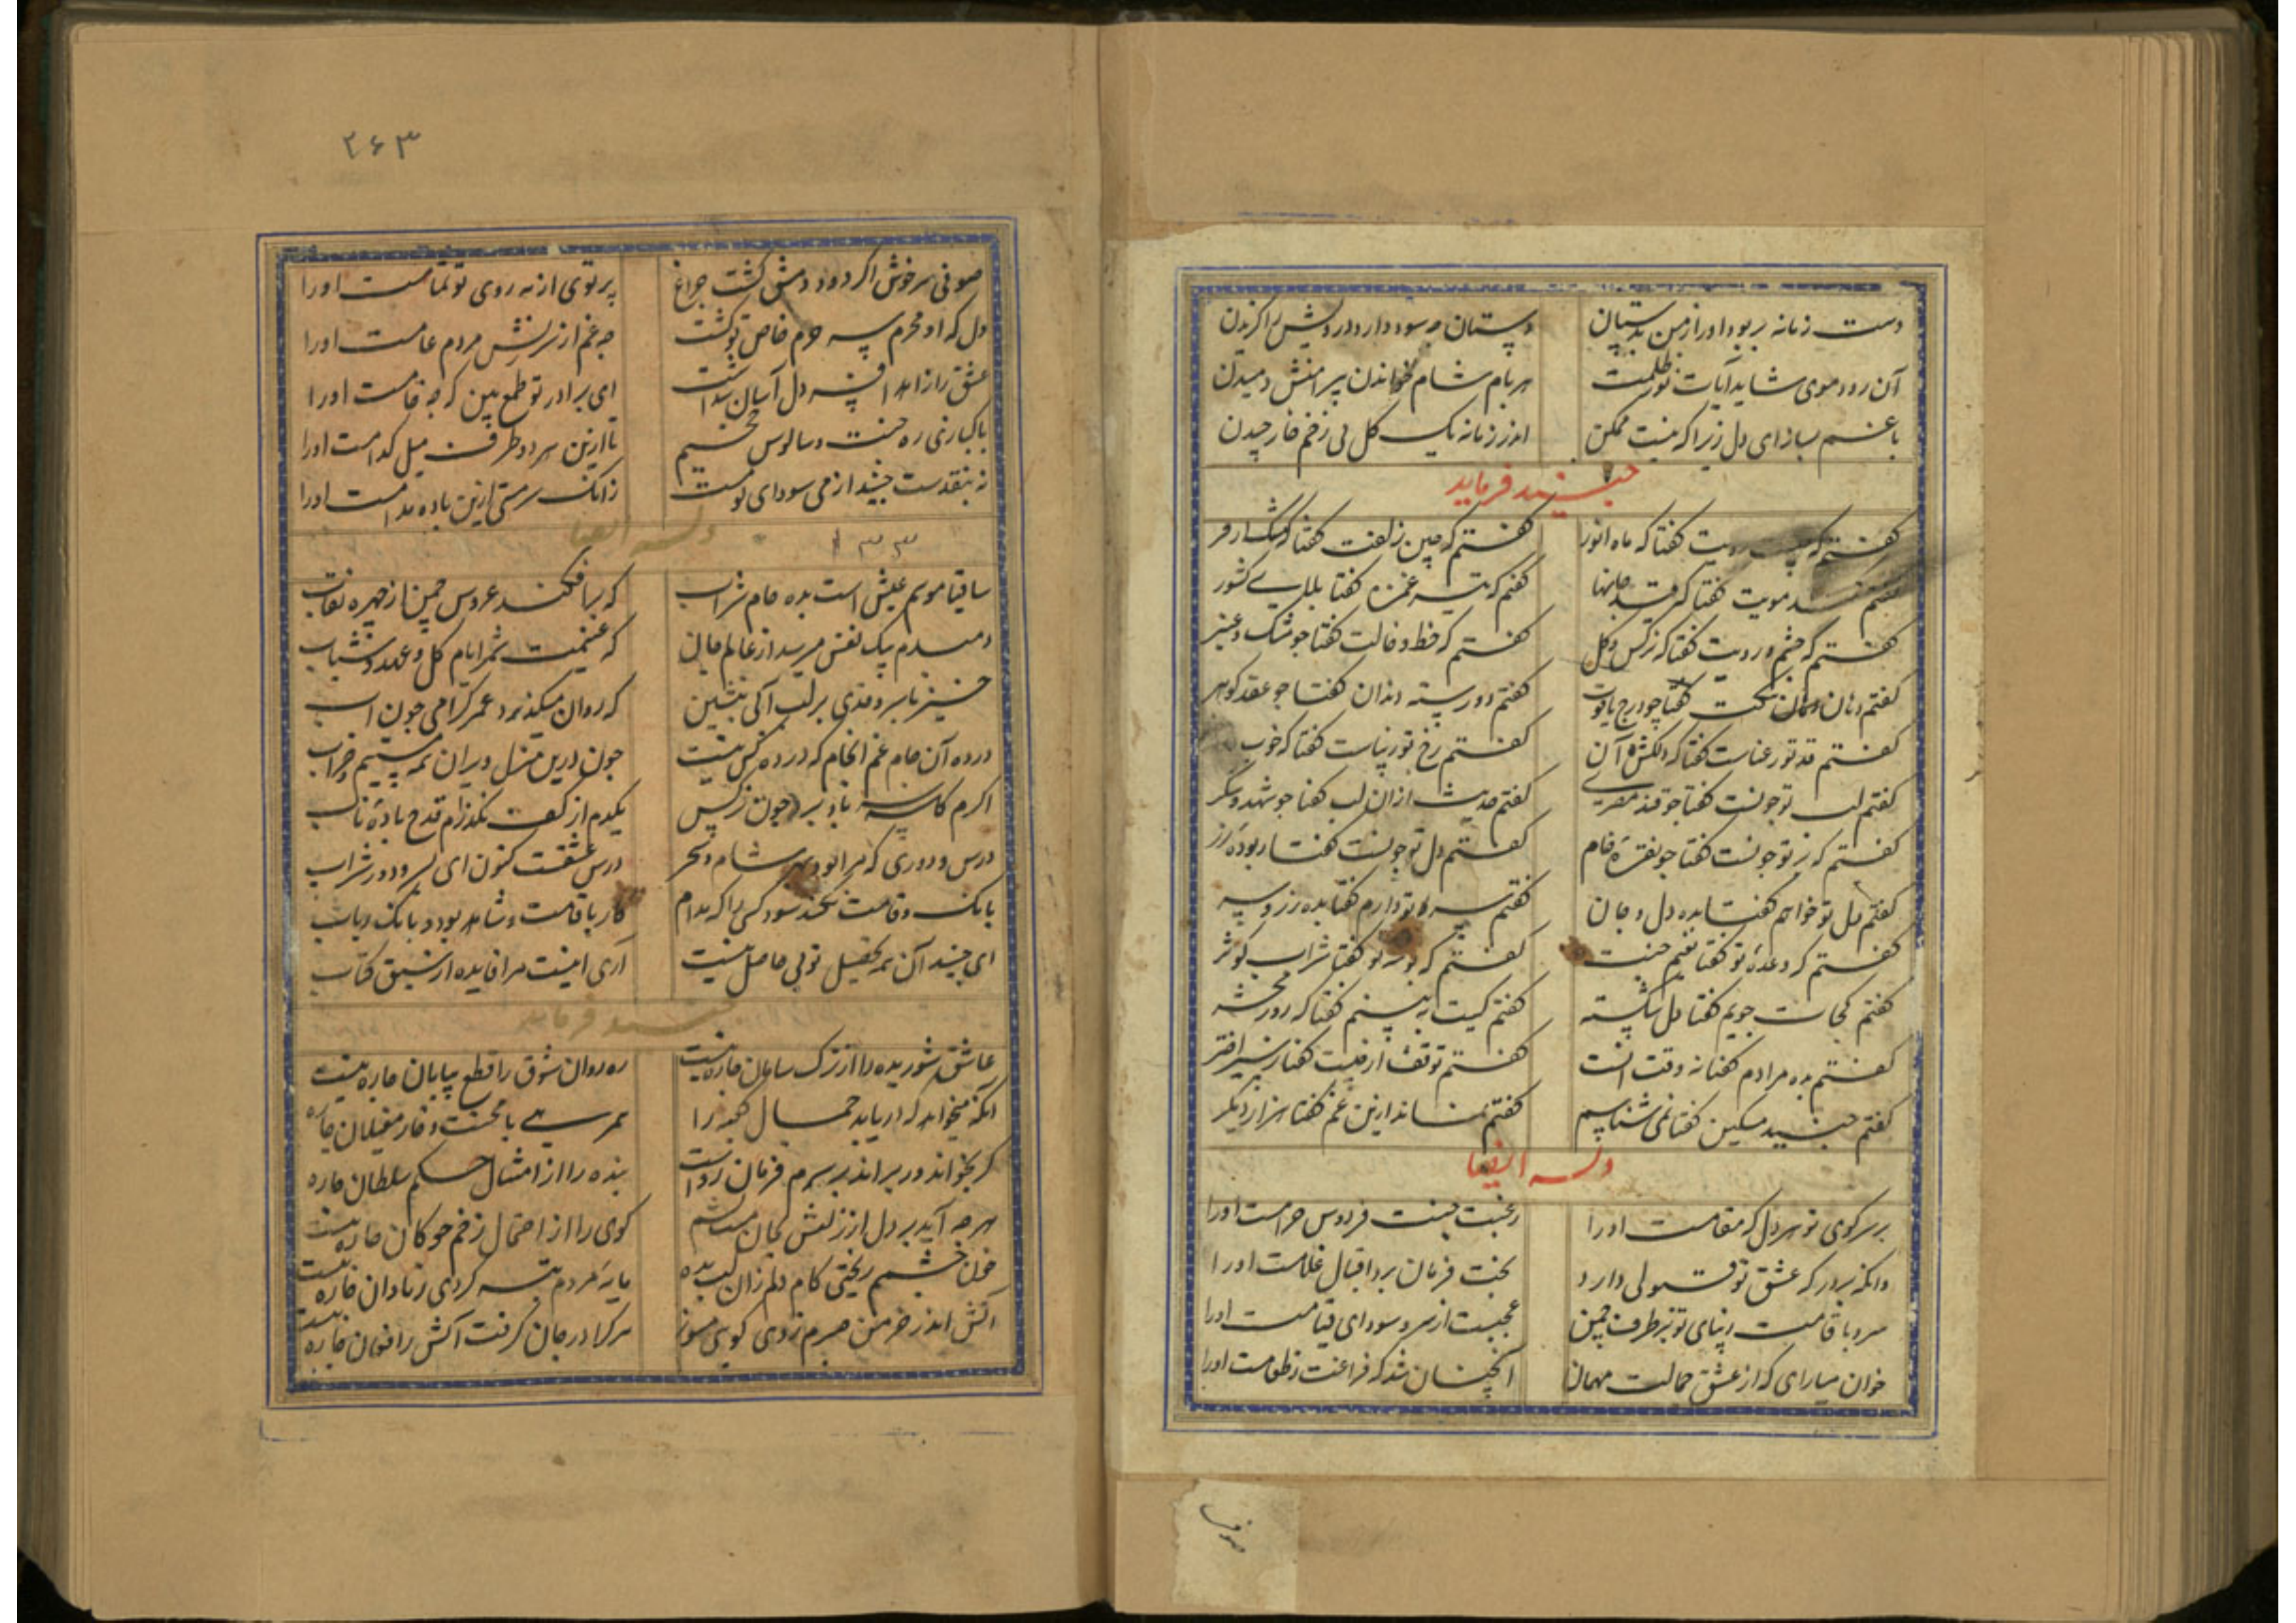 دست زمانه بربود او را ز من بدستان
دستان چه سود دارد درویش را گزیدن
آن رو و موی شاید آیات نور و ظلمت
هر بام شام خواندن پیرامنش دمیدن
با غم بساز ای دل زیرا که نیست ممکن
اندر زمانه یک گل بی زخم خار چیدن
جنید فرماید
گفتم که چیست رویت گفتا که ماه انور
گفتم که چین زلفت گفتا که مشک ازفر
مویت گفتا که قید جانها
گفتم که تیر غمزه گفتا بلای کشور
گفتم که چشم و رویت گفتا که نرگس و گل
گفتم که خط و خالت گفتا چو مشک و عنبر
گفتم دهان تنگت گفتا چو درج یاقوت
گفتم دو رسته دندان گفتا چو عقد گوهر
گفتم قد تو رعناست گفتا که دلکش آن
گفتم رخ تو زیباست گفتا که خوب
گفتم لب تو چونست گفتا چو قند مصری
گفتم حدیث از آن لب گفتا چو شهد و شکر
گفتم که بر تو چونست گفتا چو نقره خام
گفتم دل تو چونست گفتا
گفتم وصل تو خواهم گفتا بده دل و جان
گفتم سر تو دارم گفتا بده زر و سر
گفتم که وعده تو گفتا نعیم جنت
گفتم که بوسه تو گفتا شراب کوثر
گفتم کجات جویم گفتا دل شکسته
گفتم کیت ببینم گفتا که روز محشر
گفتم بده مرادم گفتا نه وقت آنست
گفتم توقف از چیست گفتا ز سیر اختر
گفتم جنید مسکین گفتا نمی شناسم
گفتم نماند ازین غم گفتا هزار دیگر
وله ایضا
بر سر کوی تو هر دل که مقامست او را
رغبت جنت فردوس حرامست او را
وانکه بر درگه عشق تو قبولی دارد
بخت فرمان بر و اقبال غلامست او را
سرو با قامت زیبای تو بر طرف چمن
عجبست ار سر و سودای قیامست او را
خوان میارای که از عشق جمالت مهمان
آنچنان شد که فراغت ز طعامست او را
صوفی
۲۶۳
صوفی سرخوش اگر دود دمش گشت چراغ
پرتوی از مه روی تو تمامست او را
دل که او محرم سر حرم خاص تو گشت
چه غم از سرزنش مردم عامست او را
عشق را زاهد دل آسان پنداشت
ای برادر تو طمع بین که چه خامست او را
پاکبازی ره جنید و سالوس
تا ازین هر دو طرف میل کدامست او را
نه بنقدست جنید از می سودای تو مست
زانک سرمستی ازین باده مدامست او را
وله ایضا
۱۳۳
ساقیا موسم عیش است بده جام شراب
که برافکند عروس چمن از چهره نقاب
دمبدم پیک نفس میرسد از عالم جان
که غنیمت شمر ایام گل و عهد شباب
خیز تا بر قدی بر لب آبی بنشین
که روان میگذرد عمر گرامی چون آب
درده آن جام غم انجام که در ده کس نیست
چون درین منزل ویران همه مستیم و خراب
اگرم کاسه سر باد برد چون نرگس
یکدم از کف نگذارم قدح باده ناب
درس و دوری که مرا بود بهر شام و سحر
درس عشقست کنون ای پسر و دور شراب
بانگ و قامت نکند سود کسی را که مدام
کار با قامت و شاهد بود و بانگ رباب
ای جنید آن همه تحصیل تو بی حاصل نیست
آری اینست مرا فایده از عشق کتاب
جنید فرماید
عاشق شوریده را از ترک سامان چاره نیست
ره روان شوق را قطع بیابان چاره نیست
آنکه میخواهد که دریابد جمال کعبه را
همرهی با محنت و خار مغیلان چاره
گر بخواند ور براند بر سرم فرمان رواست
بنده را از امتثال حکم سلطان چاره
هر چه آید بر دل از زلفش بجان
گوی را از احتمال زخم چوگان چاره نیست
خون چشمم ریختی کام دلم زان لب بده
مایه مردم تبه کردی ز تاوان چاره نیست
آتش اندر خرمن صبرم زدی گویی مسوز
هر کرا در جان گرفت آتش ز افغان چاره نیست